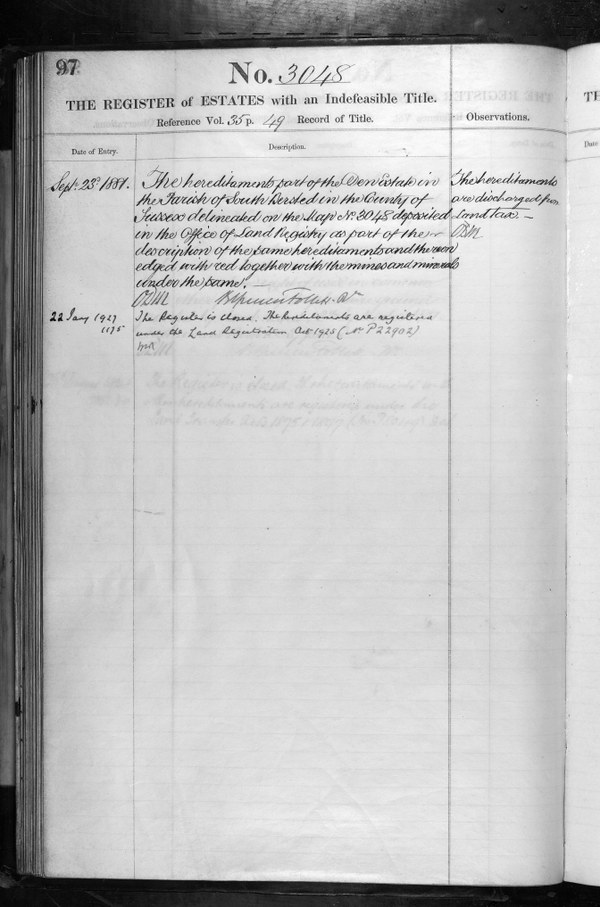 97
No. 3048
THE REGISTER of ESTATES with an Indefeasible Title.
Reference Vol. 35 p. 49 Record of Title.
Observations.
Date of Entry.
Description.
Sept. 23d 1881.
The hereditaments part of the Den Estate in
the Parish of South Bersted in the County of
Sussex delineated on the Map No. 3048 deposited
in the Office of Land Registry as part of the
description of the same hereditaments and thereon
edged with red together with the mines and minerals
under the same. —
The hereditaments
are discharged from
land tax. —
22 Jany 1927
The Register is closed. The hereditaments are registered
under the Land Registration Act 1925 (No P22902)
TH
Date